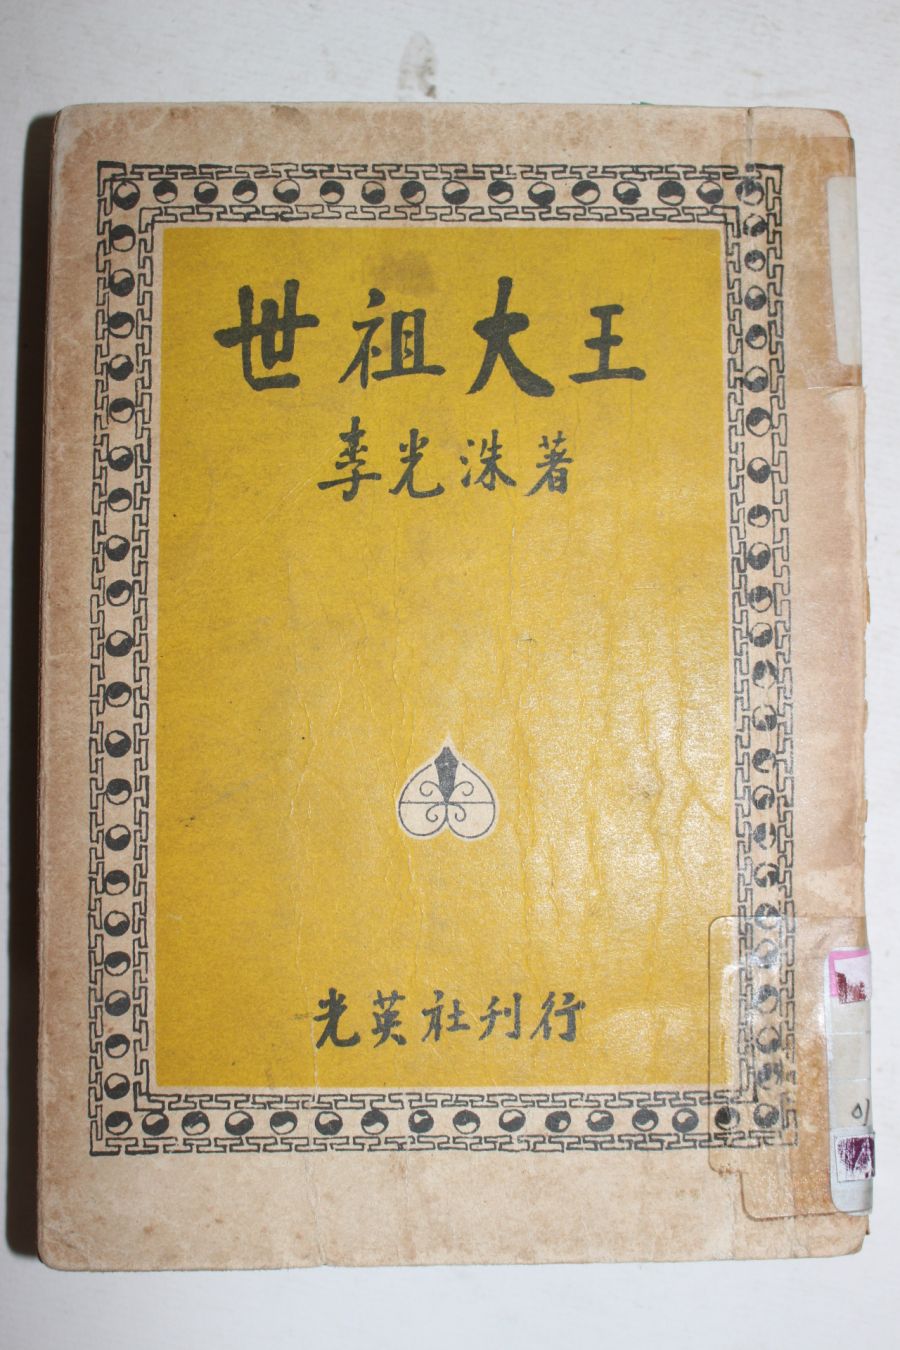 世祖大王
李光洙著
光英社刊行